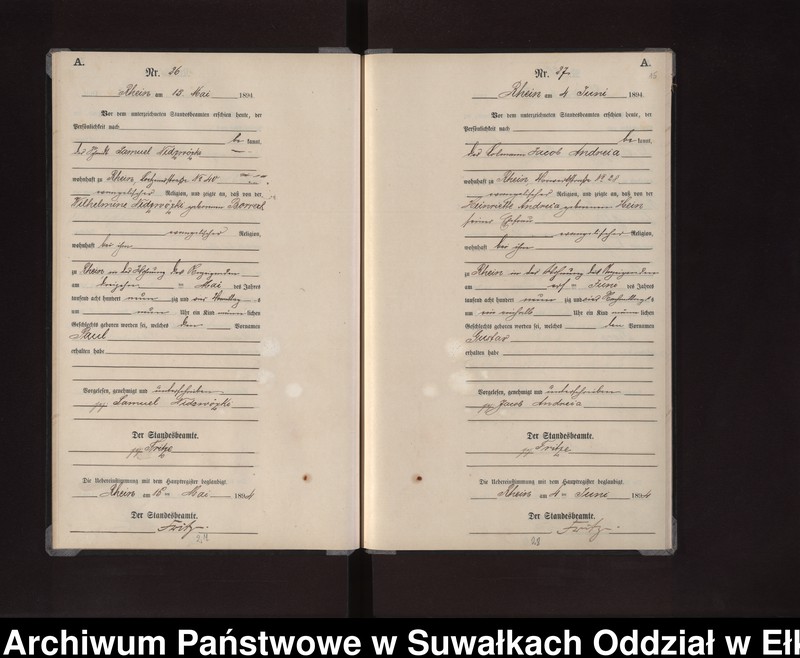 A.
Nr. 26
Rhein am 15. Mai 1894
Vor dem unterzeichneten Standesbeamten erschien heute, der
Persönlichkeit nach
be kannt,
Samuel
wohnhaft zu Rhein, No 40
evangelischer Religion, und zeigte an, daß von der
Wilhelmine geborenen
evangelischer Religion,
wohnhaft bei ihm
zu Rhein in der Wohnung des Anzeigenden
am dreizehn ten Mai des Jahres
tausend acht hundert neun zig und vier
um neun Uhr ein Kind männ lichen
Geschlechts geboren worden sei, welches den Vornamen
Paul
erhalten habe
Vorgelesen, genehmigt und unterschrieben
gez. Samuel
Der Standesbeamte.
gez. Fritze
Die Uebereinstimmung mit dem Hauptregister beglaubigt.
Rhein am 15ten Mai 1894
Der Standesbeamte.
Fritze
A.
Nr. 27.
Rhein am 4 Juni 1894
Vor dem unterzeichneten Standesbeamten erschien heute, der
Persönlichkeit nach
be kannt,
Jacob Andreia
wohnhaft zu Rhein No 28
evangelischer Religion, und zeigte an, daß von der
Henriette Andreia geborenen Hein
seiner Ehefrau
evangelischer Religion,
wohnhaft bei ihm
zu Rhein in der Wohnung des Anzeigenden
am ten Juni des Jahres
tausend acht hundert neun zig und vier Nachmittags
um ein einhalb Uhr ein Kind männ lichen
Geschlechts geboren worden sei, welches den Vornamen
Gustav
erhalten habe
Vorgelesen, genehmigt und unterschrieben
gez. Jacob Andreia
Der Standesbeamte.
gez. Fritze
Die Uebereinstimmung mit dem Hauptregister beglaubigt.
Rhein am 4ten Juni 1894
Der Standesbeamte.
Fritze
28
Archiwum Państwowe w Suwałkach Oddział w Ełk